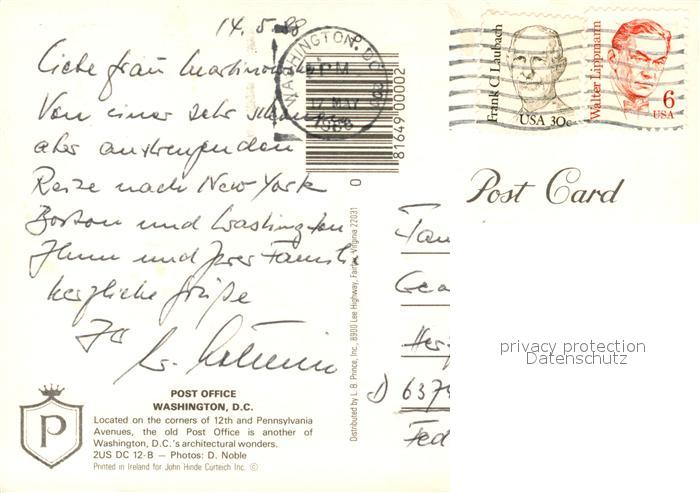 14.5.88
Liebe Frau
Von einer sehr schönen
aber anstrengenden
Reise nach New York
Boston und Washington
Ihnen und Ihrer Familie
herzliche Grüße
Ihr
WASHINGTON, DC
PM
17 MAY
1988
81649 00002
0
Frank C. Laubach
USA 30c
Walter Lippmann
6
USA
Post Card
D 637
privacy protection
Datenschutz
Distributed by L. B. Prince, Inc., 8900 Lee Highway, Fairfax, Virginia 22031
P
POST OFFICE
WASHINGTON, D.C.
Located on the corners of 12th and Pennsylvania
Avenues, the old Post Office is another of
Washington, D.C.'s architectural wonders.
2US DC 12-B — Photos: D. Noble
Printed in Ireland for John Hinde Curteich Inc. ©